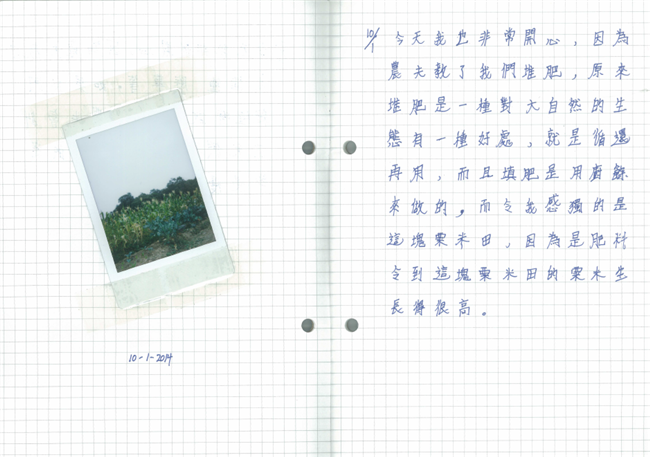 10-1-2014
10/1 今天我也非常開心，因為
農夫教了我們堆肥，原來
堆肥是一種對大自然的生
態有一種好處，就是循還
再用，而且填肥是用廚餘
來做的。而令我感獨的是
這塊粟米田，因為是肥料
令到這塊粟米田的粟米生
長得很高。